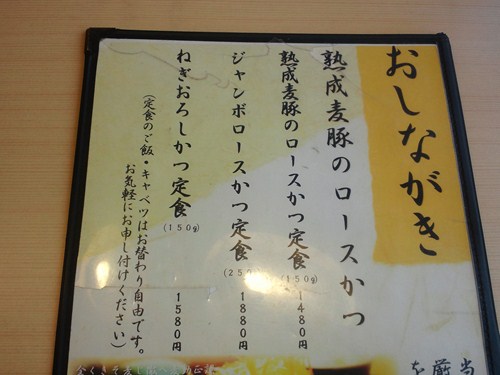 おしながき
熟成麦豚のロースかつ
熟成麦豚のロースかつ定食(150g) 1480円
ジャンボロースかつ定食(250g) 1880円
ねぎおろしかつ定食(150g) 1580円
(定食のご飯・キャベツはお替わり自由です。
お気軽にお申し付けください)
当
厳
を